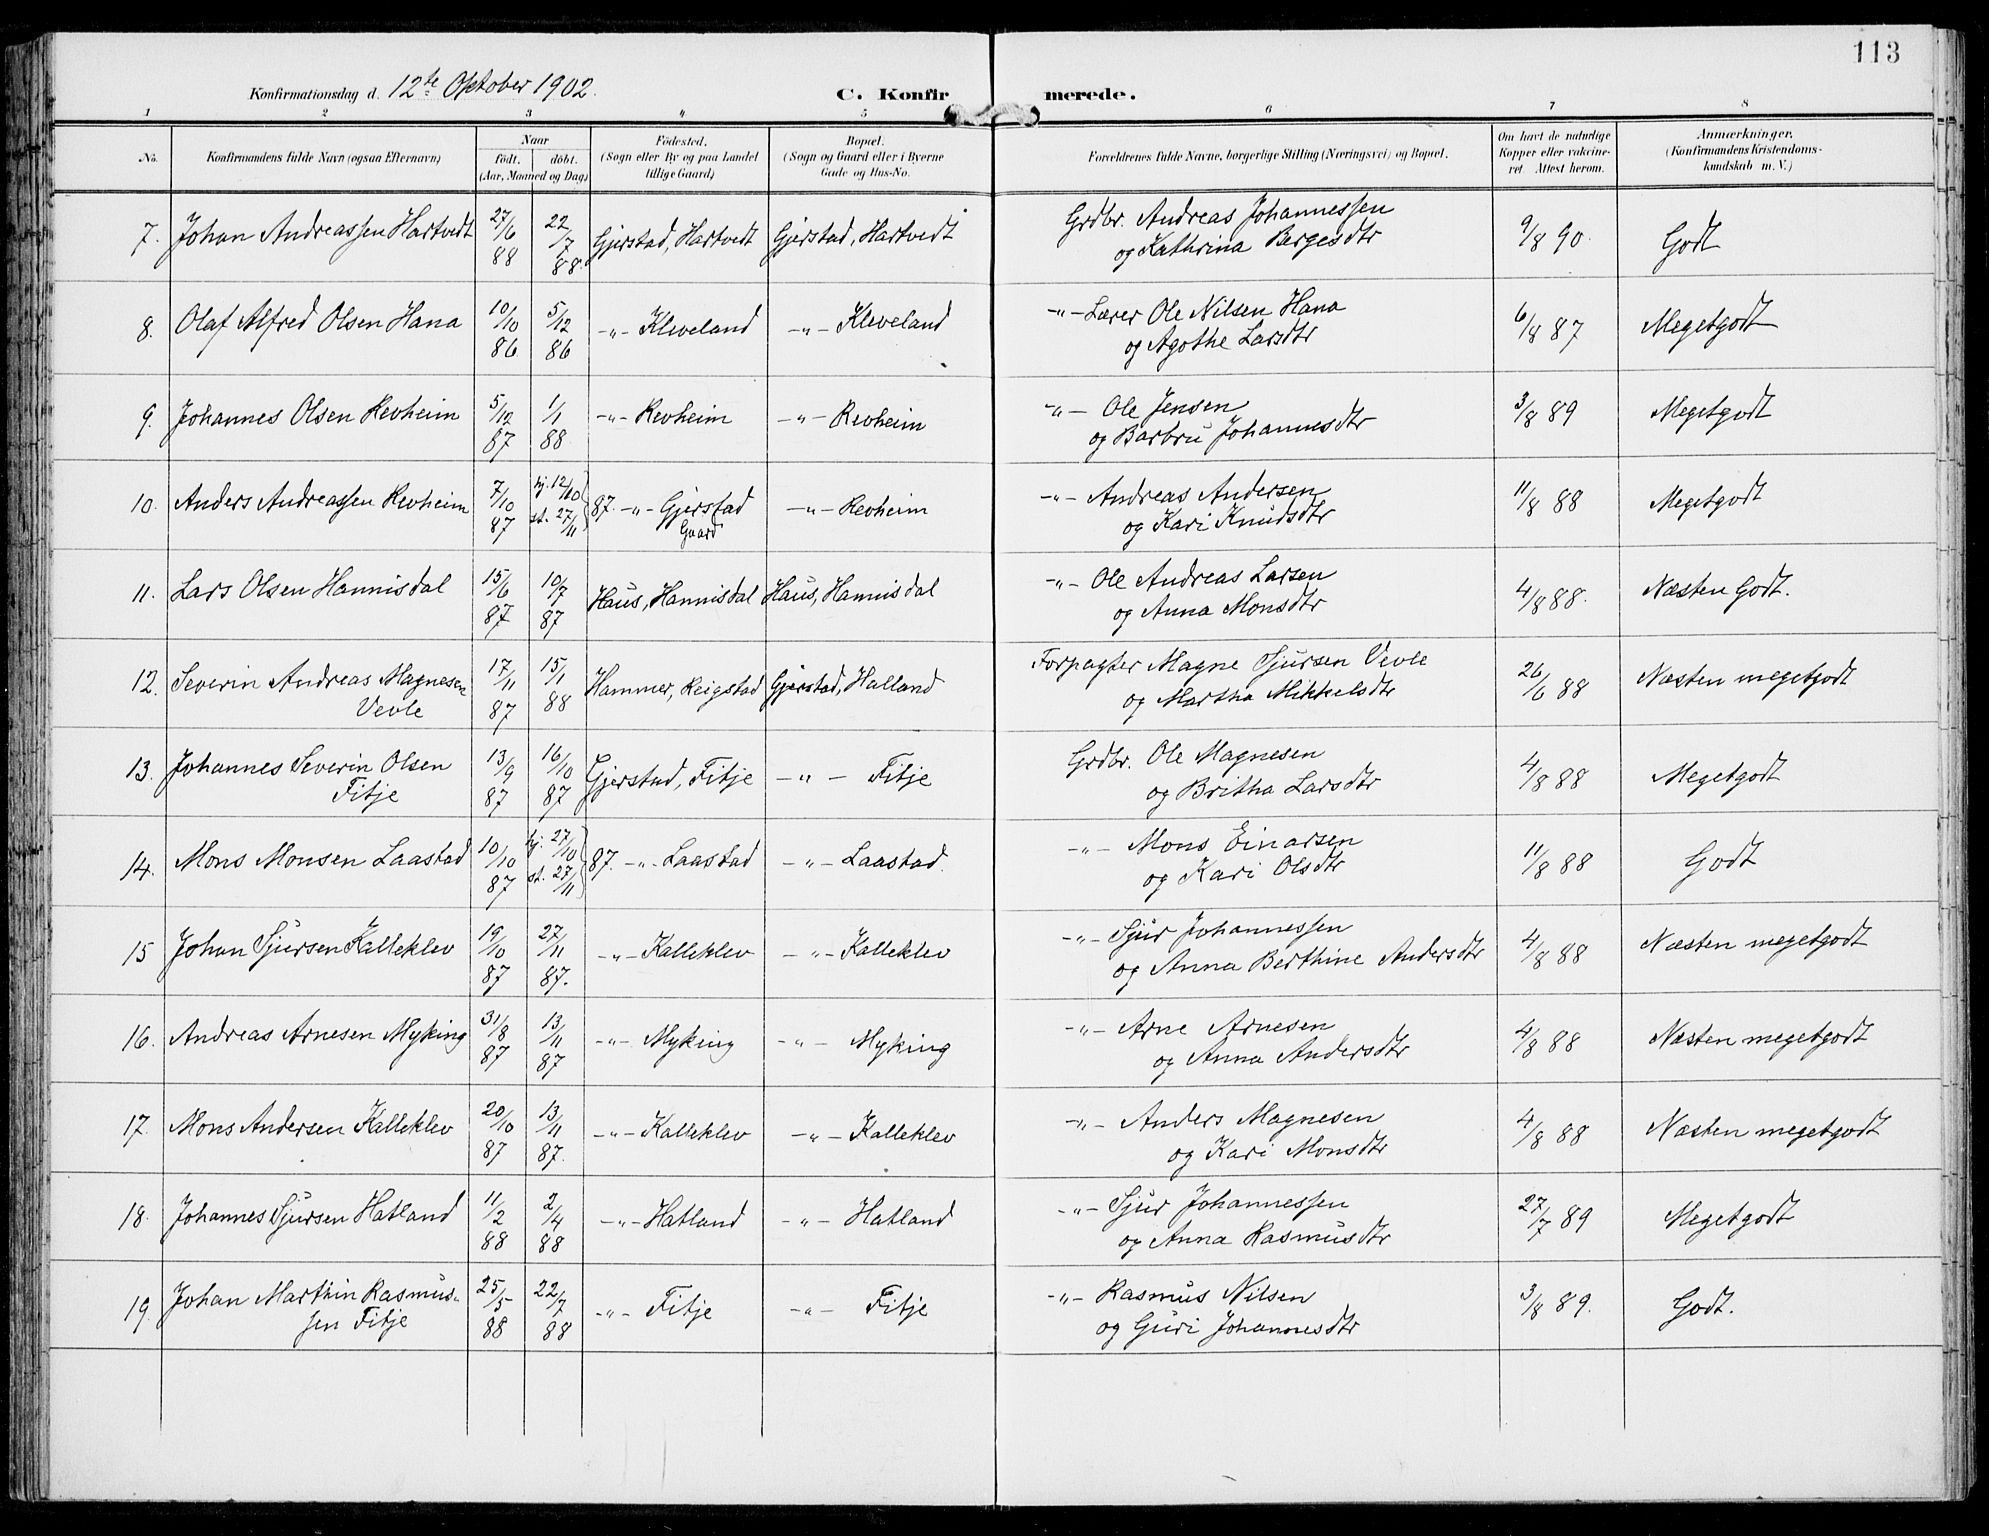 113
Konfirmationsdag d. 12te Oktober 1902.
C. Konfirmerede.
1 2 3 4 5 6 7 8
No. Konfirmandens fulde Navn (ogsaa Efternavn) Naar født. døbt. (Aar, Maaned og Dag.) Fødested. (Sogn eller By og paa Landet tillige Gaard) Bopæl. (Sogn og Gaard eller i Byerne Gade og Hus-No. Forældrenes fulde Navne, borgerlige Stilling (Næringsvei) og Bopæl. Om havt de naturlige Kopper eller vakcineret. Attest herom. Anmærkninger. (Konfirmandens Kristendomskundskab m. V.)
7. Johan Andreassen Hartvedt 27/6 88 22/7 88. Gjerstad, Hartvedt Gjerstad, Hartvedt Grdbr. Andreas Johannessen og Kathrina Bergesdtr 9/8 90. Godt
8. Olaf Alfred Olsen Hana 10/10 86 5/12 86 -"- Kleveland -"- Kleveland -"- Lærer Ole Nilsen Hana og Agothe Larsdtr 6/8 87 Megetgodt
9. Johannes Olsen Revheim 5/12 87 1/1 88 -"- Revheim -"- Revheim -"- Ole Jensen og Barbru Johannesdtr 3/8 89 Megetgodt
10. Anders Andreassen Revheim 7/10 87 hj. 12/10 st. 27/11 87. -"- Gjerstad Gaard -"- Revheim -"- Andreas Andersen og Kari Knudsdtr 11/8 88 Megetgodt
11. Lars Olsen Hannisdal 15/6 87 10/7 87 Haus, Hannisdal Haus, Hannisdal -"- Ole Andreas Larsen og Anna Monsdtr 4/8 88. Næsten Godt.
12. Severin Andreas Magnesen Vevle 17/11 87 15/1 88 Hammer, Reigstad Gjerstad, Halland Forpagter Magne Sjursen Vevle og Martha Mikkelsdtr 26/6 88 Næsten megetgodt
13. Johannes Severin Olsen Fitje 13/9 87 16/10 87 Gjerstad, Fitje -"- Fitje Grdbr. Ole Magnesen og Britha Larsdtr 4/8 88 Megetgodt
14. Mons Monsen Laastad 10/10 87 hj. 27/10 st. 27/11 87. -"- Laastad -"- Laastad. -"- Mons Einarsen og Kari Olsdtr 11/8 88 Godt
15 Johan Sjursen Kalleklev 19/10 87 27/11 87. -"- Kalleklev -"- Kalleklev -"- Sjur Johannessen og Anna Berthine Andersdtr 4/8 88 Næsten megetgodt
16. Andreas Arnesen Myking 31/8 87 13/11 87 -"- Myking -"- Myking -"- Arne Arnesen og Anna Andersdtr 4/8 88 Næsten megetgodt
17. Mons Andersen Kalleklev 20/10 87 13/11 87. -"- Kalleklev -"- Kalleklev -"- Anders Magnesen og Kari Monsdtr 4/8 88 Næsten megetgodt
18. Johannes Sjursen Hatland 11/2 88 2/4 88 -"- Hatland -"- Hatland -"- Sjur Johannessen og Anna Rasmusdtr 27/7 89 Megetgodt
19. Johan Marthin Rasmussen Fitje 25/5 88 22/7 88 -"- Fitje -"- Fitje -"- Rasmus Nilsen og Guri Johannesdtr 3/8 89. Godt.